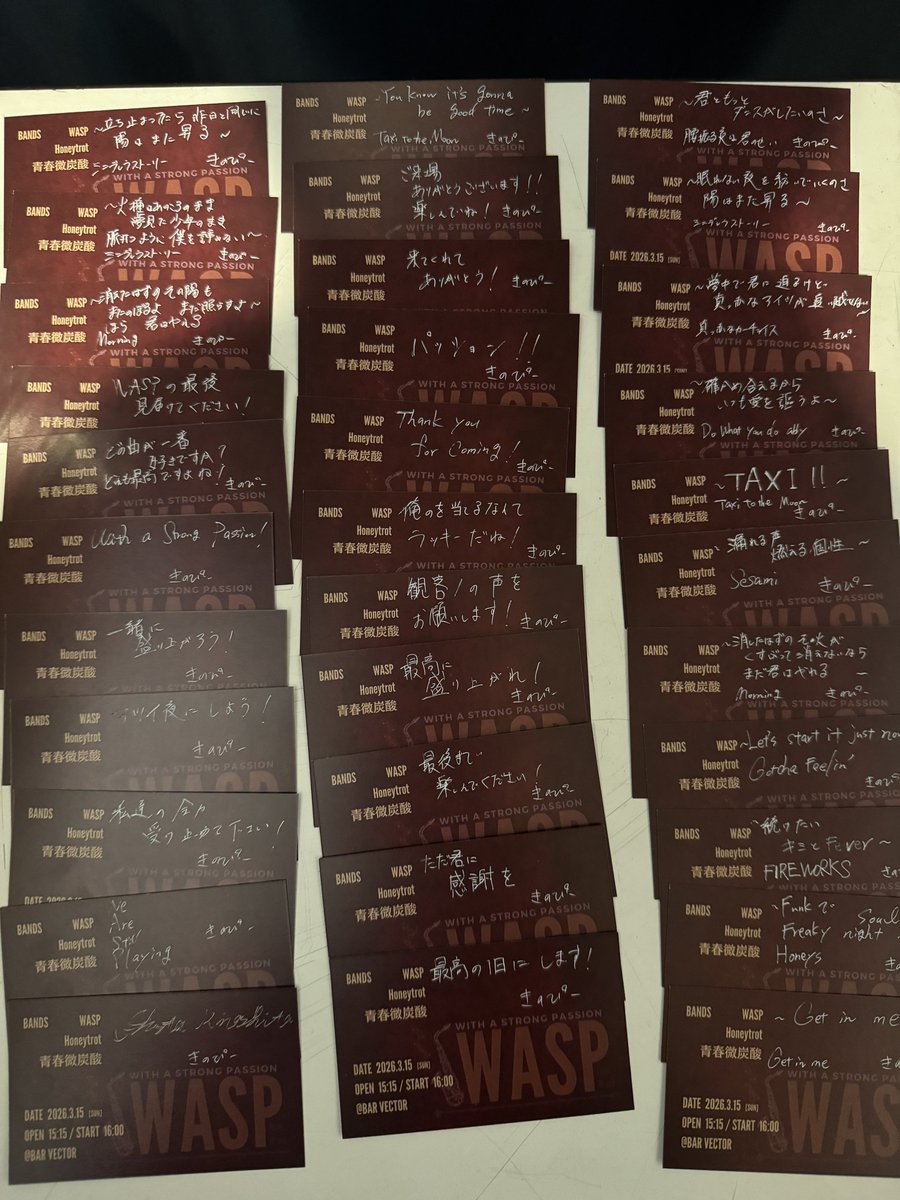 BANDS WASP
Honeytrot
青春微炭酸
～立ち止まったら 昨日と同じに
陽はまた昇る～
シンデレラストーリー きのぴー
WITH A STRONG PASSION
WASP
BANDS WASP
Honeytrot
青春微炭酸
～火種はあの
夢見た少年のまま
きのぴー
WITH A STRONG PASSION
BANDS WASP
Honeytrot
青春微炭酸
～消えたはずのその陽も
またのぼるよ また照らすよ～
ほら 君はやれる
Morning きのぴー
WITH A STRONG PASSION
BANDS WASP
Honeytrot
青春微炭酸
WASPの最後
見届けてください！
BANDS WASP
Honeytrot
青春微炭酸
どの曲が一番
好きですか？
どれも最高ですよね！
きのぴー
WITH A STRONG PASSION
BANDS WASP
Honeytrot
青春微炭酸
With a Strong Passion!
きのぴー
WITH A STRONG PASSION
WASP
BANDS WASP
Honeytrot
青春微炭酸
一緒に
盛り上がろう！
きのぴー
WITH A STRONG PASSION
BANDS WASP
Honeytrot
青春微炭酸
アツイ夜にしよう！
きのぴー
WITH A STRONG PASSION
WASP
BANDS WASP
Honeytrot
青春微炭酸
私達の全力
受け止めて下さい！
きのぴー
WITH A STRONG PASSION
BANDS WASP
Honeytrot
青春微炭酸
Are
Still
Playing
きのぴー
WITH A STRONG PASSION
BANDS WASP
Honeytrot
青春微炭酸
きのぴー
WITH A STRONG PASSION
WASP
DATE 2026.3.15 [SUN]
OPEN 15:15 / START 16:00
@BAR VECTOR
BANDS WASP
Honeytrot
青春微炭酸
~You know it's gonna
be good time~
Taxi to the Moon きのぴー
BANDS WASP
Honeytrot
青春微炭酸
ご来場
ありがとうございます！！
楽しんでね！ きのぴー
WITH A STRONG PASSION
BANDS WASP
Honeytrot
青春微炭酸
来てくれて
ありがとう！ きのぴー
BANDS WASP
Honeytrot
青春微炭酸
パッション！！
きのぴー
WITH A STRONG PASSION
BANDS WASP
Honeytrot
青春微炭酸
Thank you
for Coming!
きのぴー
WITH A STRONG PASSION
BANDS WASP
Honeytrot
青春微炭酸
俺のを当てるなんて
ラッキーだね！
きのぴー
BANDS WASP
Honeytrot
青春微炭酸
観客の声を
お願いします！ きのぴー
BANDS WASP
Honeytrot
青春微炭酸
最高に
盛り上がれ！
きのぴー
WITH A STRONG PASSION
BANDS WASP
Honeytrot
青春微炭酸
最後まで
楽しんでください！
きのぴー
WITH A STRONG PASSION
BANDS WASP
Honeytrot
青春微炭酸
ただ君に
感謝を
きのぴー
WITH A STRONG PASSION
BANDS WASP
Honeytrot
青春微炭酸
最高の1日にします！
きのぴー
WITH A STRONG PASSION
WASP
DATE 2026.3.15 [SUN]
OPEN 15:15 / START 16:00
@BAR VECTOR
BANDS WASP
Honeytrot
青春微炭酸
～君ともっと
ダンスがしたいのさ
きのぴー
WITH A STRONG PASSION
BANDS WASP
Honeytrot
青春微炭酸
～眠れない夜を
陽はまた昇る～
シンデレラストーリー きのぴー
WITH A STRONG PASSION
DATE 2026.3.15 [SUN]
BANDS WASP
Honeytrot
青春微炭酸
～夢中で君に迫るけど
真っ赤なアイツが
真っ赤なカーチェイス
きのぴー
WITH A STRONG PASSION
WASP
DATE 2026.3.15 [SUN]
BANDS WASP
Honeytrot
青春微炭酸
～確かめ合えるから
いつも愛を謳うよ～
Do What you do きのぴー
WITH A STRONG PASSION
BANDS WASP
Honeytrot
青春微炭酸
~TAXI!!~
Taxi to the Moon
きのぴー
BANDS WASP
Honeytrot
青春微炭酸
～溢れる声
燃える個性～
Sesami きのぴー
WITH A STRONG PASSION
BANDS WASP
Honeytrot
青春微炭酸
～消したはずのその火が
くすぶって消えないなら
まだ君はやれる ～
Morning きのぴー
WITH A STRONG PASSION
BANDS WASP
Honeytrot
青春微炭酸
~Let's start it just now
Gotcha Feelin'
WITH A STRONG PASSION
BANDS WASP
Honeytrot
青春微炭酸
～踊りたい
キミとFever～
FIREWORKS
WITH A STRONG PASSION
BANDS WASP
Honeytrot
青春微炭酸
~Funkで Soul
Freaky night
Honeys
WITH A STRONG PASSION
BANDS WASP
Honeytrot
青春微炭酸
~Get in me
Get in me
WITH A STRONG PASSION
DATE 2026.3.15 [SUN]
OPEN 15:15 / START 16:00
@BAR VECTOR